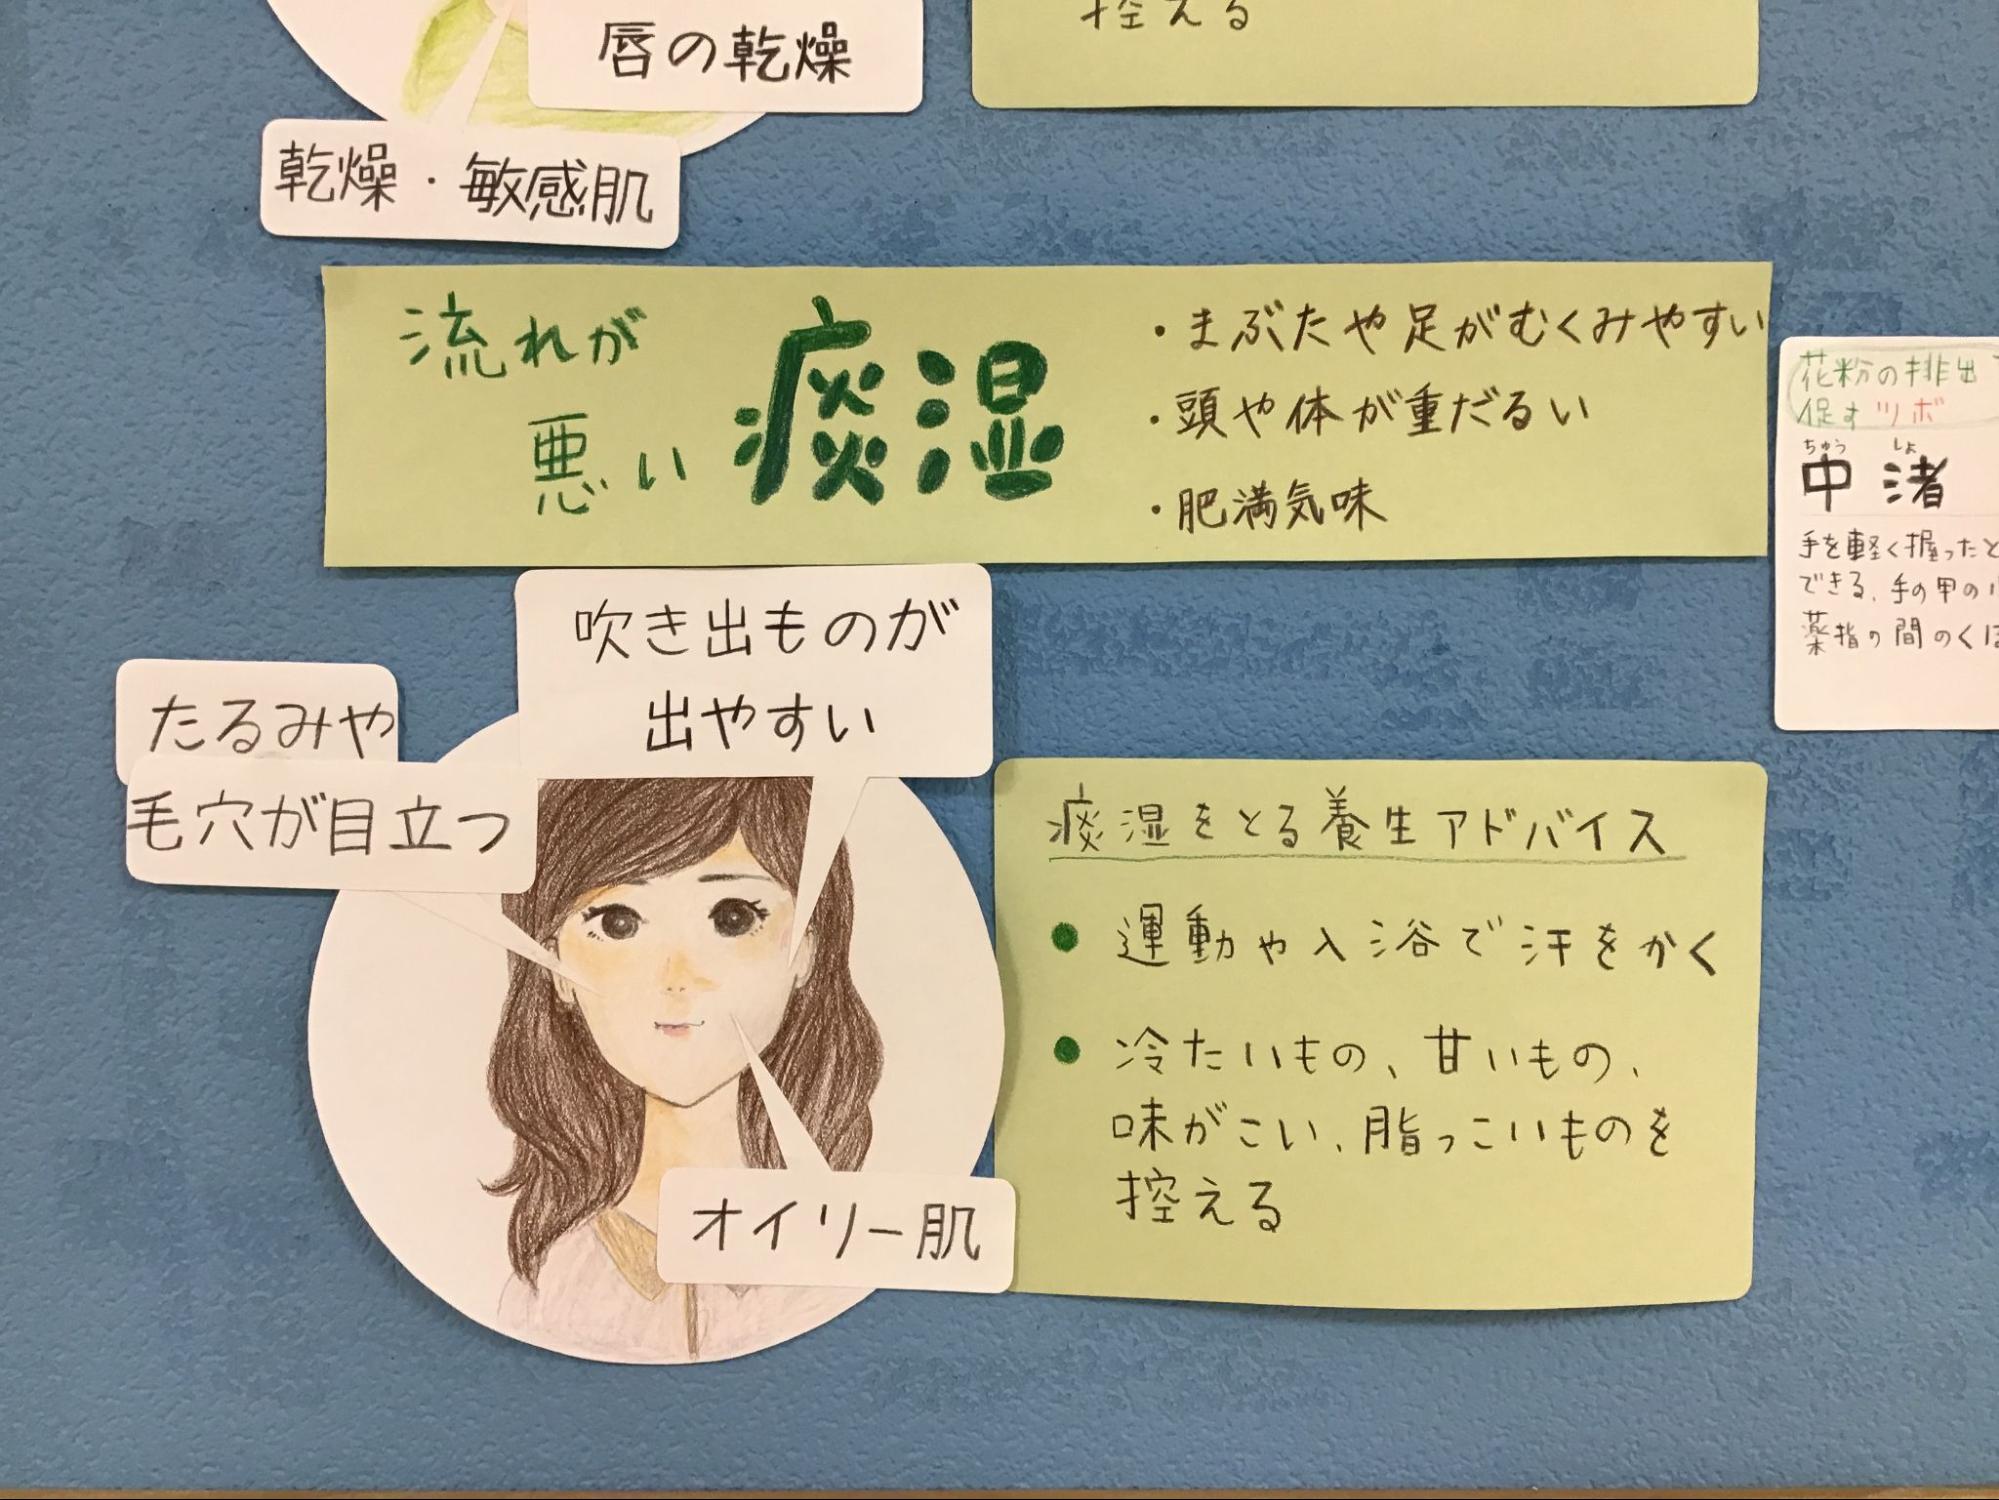 控える
唇の乾燥
乾燥・敏感肌
流れが
悪い
痰湿
・まぶたや足がむくみやすい
・頭や体が重だるい
・肥満気味
花粉の排出
促すツボ
ちゅう しょ
中 渚
手を軽く握ったと
できる、手の甲の
薬指の間のくぼ
吹き出ものが
出やすい
たるみや
毛穴が目立つ
オイリー肌
痰湿をとる養生アドバイス
● 運動や入浴で汗をかく
● 冷たいもの、甘いもの、
味がこい、脂っこいものを
控える